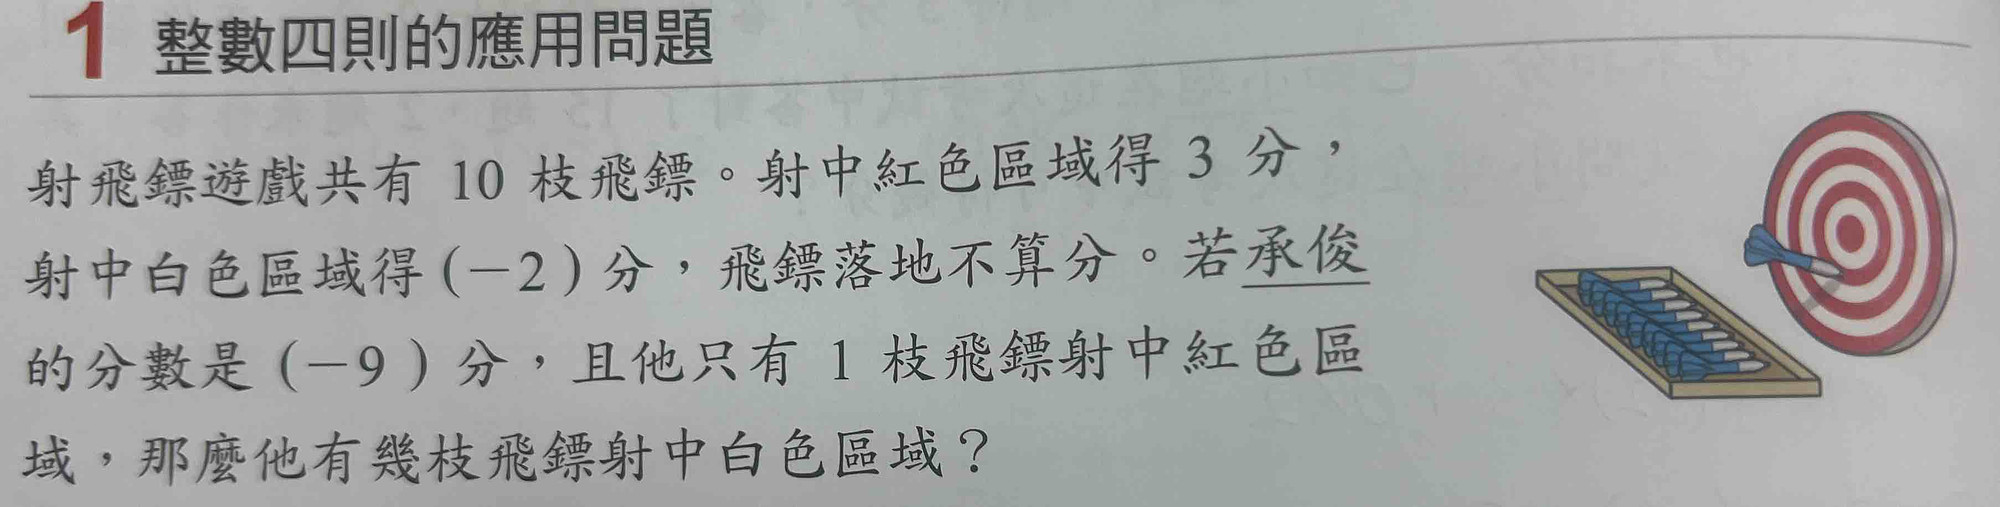 1 整數四則的應用問題
射飛鏢遊戲共有 10 枝飛鏢。射中紅色區域得 3 分，
射中白色區域得(－2)分，飛鏢落地不算分。若承俊
的分數是(－9)分，且他只有 1 枝飛鏢射中紅色區
域，那麼他有幾枝飛鏢射中白色區域？